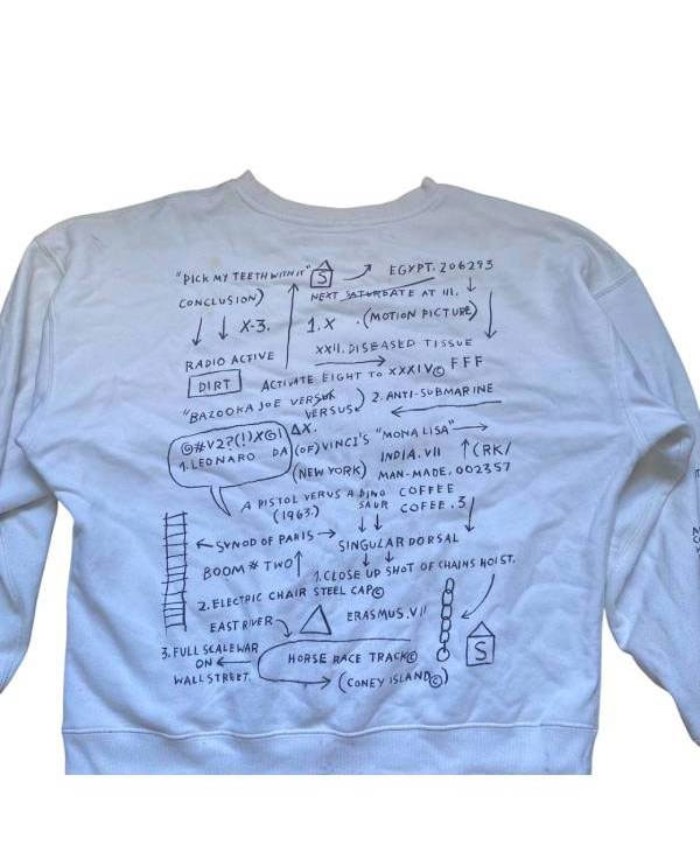 "PICK MY TEETH WITH IT" S EGYPT. 206293
CONCLUSION) NEXT SATURDATE AT III.
X-3. 1.X .(MOTION PICTURE)
RADIO ACTIVE XXII. DISEASED TISSUE
DIRT ACTIVATE EIGHT TO XXXIV© FFF
"BAZOOKA JOE VERSUS 2. ANTI-SUBMARINE
VERSUS)
@#V2?(!)X©! ΔX.
1. LEONARO DA (OF) VINCI'S "MONA LISA"
INDIA. VII (RK/
(NEW YORK) MAN-MADE. 002357
A PISTOL VERUS A DINO COFFEE
(1963.) SAUR COFEE. 3
SYNOD OF PARIS SINGULAR DORSAL
BOOM # TWO 1. CLOSE UP SHOT OF CHAINS HOIST.
2. ELECTRIC CHAIR STEEL CAP©
EAST RIVER ERASMUS. VII
3. FULL SCALE WAR HORSE RACE TRACK© S
ON
WALL STREET. (CONEY ISLAND©)